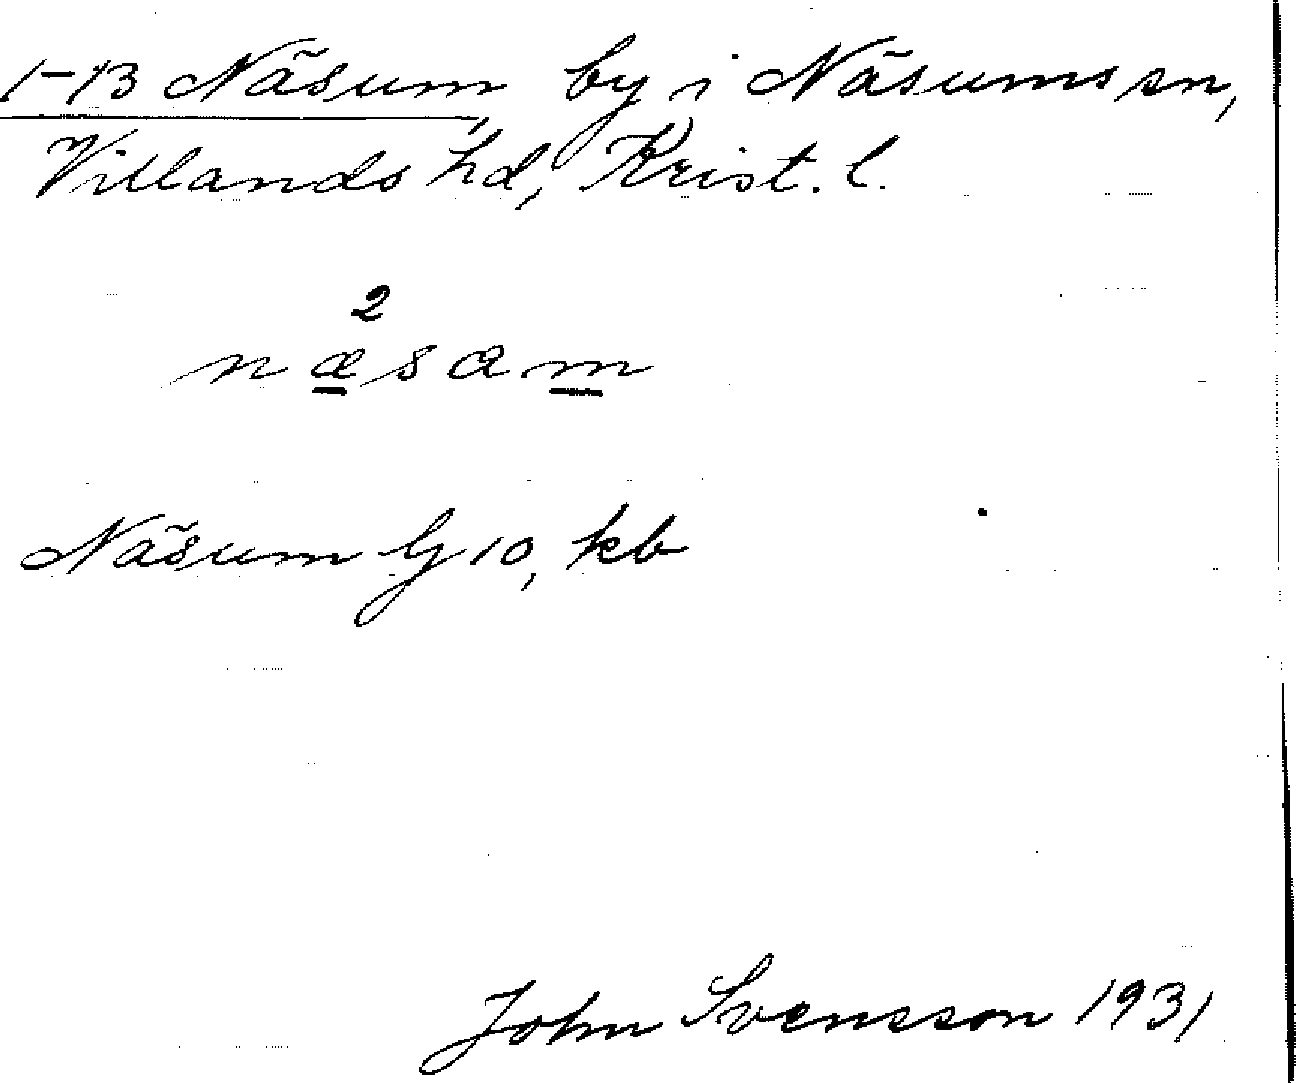 1-13 Näsum, by i Näsums sn,
Villands hd, Krist. l.
2
næsam
Näsum G 10, kb
John Svensson 1931